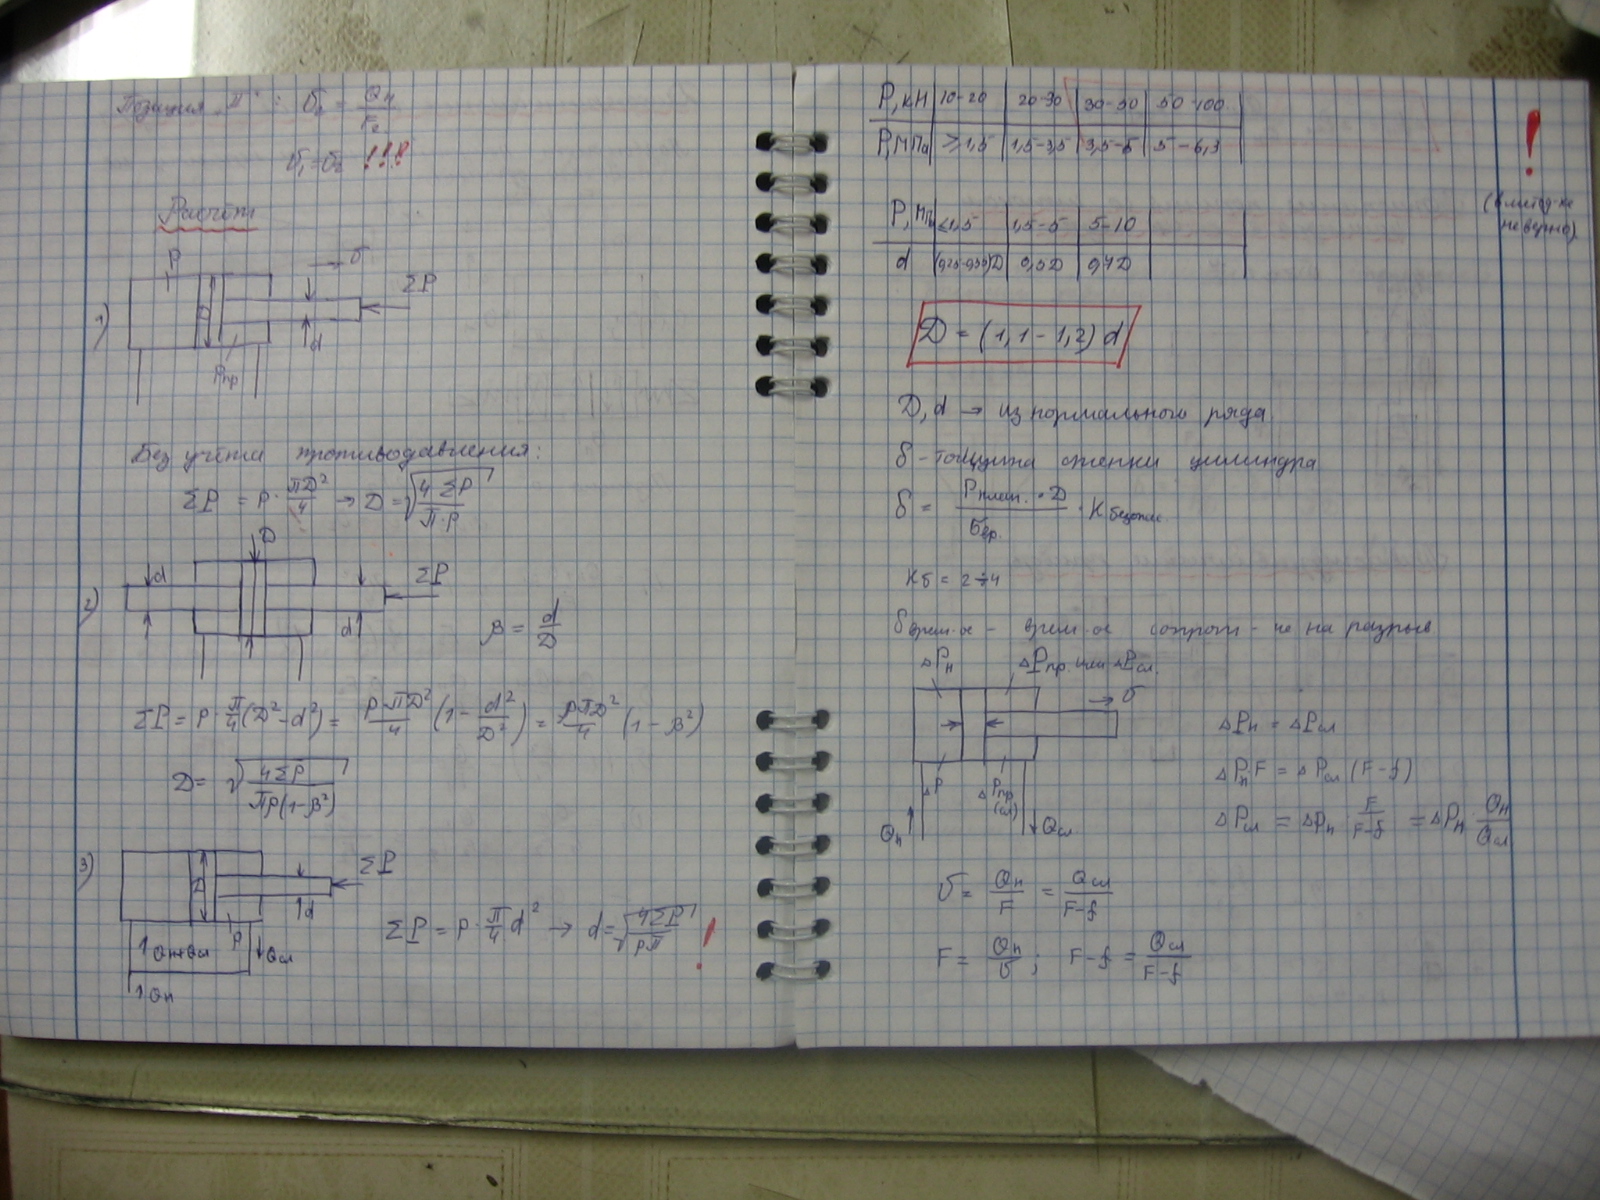 Позиция "П": υ₂ = Qн / F₂
υ₁ = υ₂ !!!
Расчёт
1)
P
υ
ΣP
D
d
Pпр
Без учёта противодавления:
ΣP = p · πD²/4 → D = √(4ΣP / π·p)
2)
D
d
ΣP
d
β = d/D
ΣP = p · π/4 (D² - d²) = p·πD²/4 (1 - d²/D²) = pπD²/4 (1 - β²)
D = √(4ΣP / πp(1-β²))
3)
D
ΣP
d
P
Qн+Qсл
Qсл
Qн
ΣP = p · π/4 d² → d = √(4ΣP / pπ) !
P, кН | 10-20 | 20-30 | 30-50 | 50-100
P, МПа | ≥1,5 | 1,5-3,5 | 3,5-5 | 5-6,3
!
P, МПа | ≤1,5 | 1,5-5 | 5-10
d | 0,5D | 0,7D
(в метод-ке неверно)
D = (1,1 - 1,2) d
D, d → из нормального ряда
δ - толщина стенки цилиндра
δ = · D / σвр. · K безопас.
Kδ = 2÷4
врем-ое сопрот-ие на разрыв
ΔPн
ΔPпр. или ΔPсл.
υ
ΔP
ΔPпр (сл)
Qн
Qсл
ΔPн = ΔPсл
ΔPн·F = ΔPсл (F-f)
ΔPсл = ΔPн · F / F-f = ΔPн · Qн / Qсл
υ = Qн / F = Qсл / F-f
F = Qн / υ ; F-f = Qсл / F-f